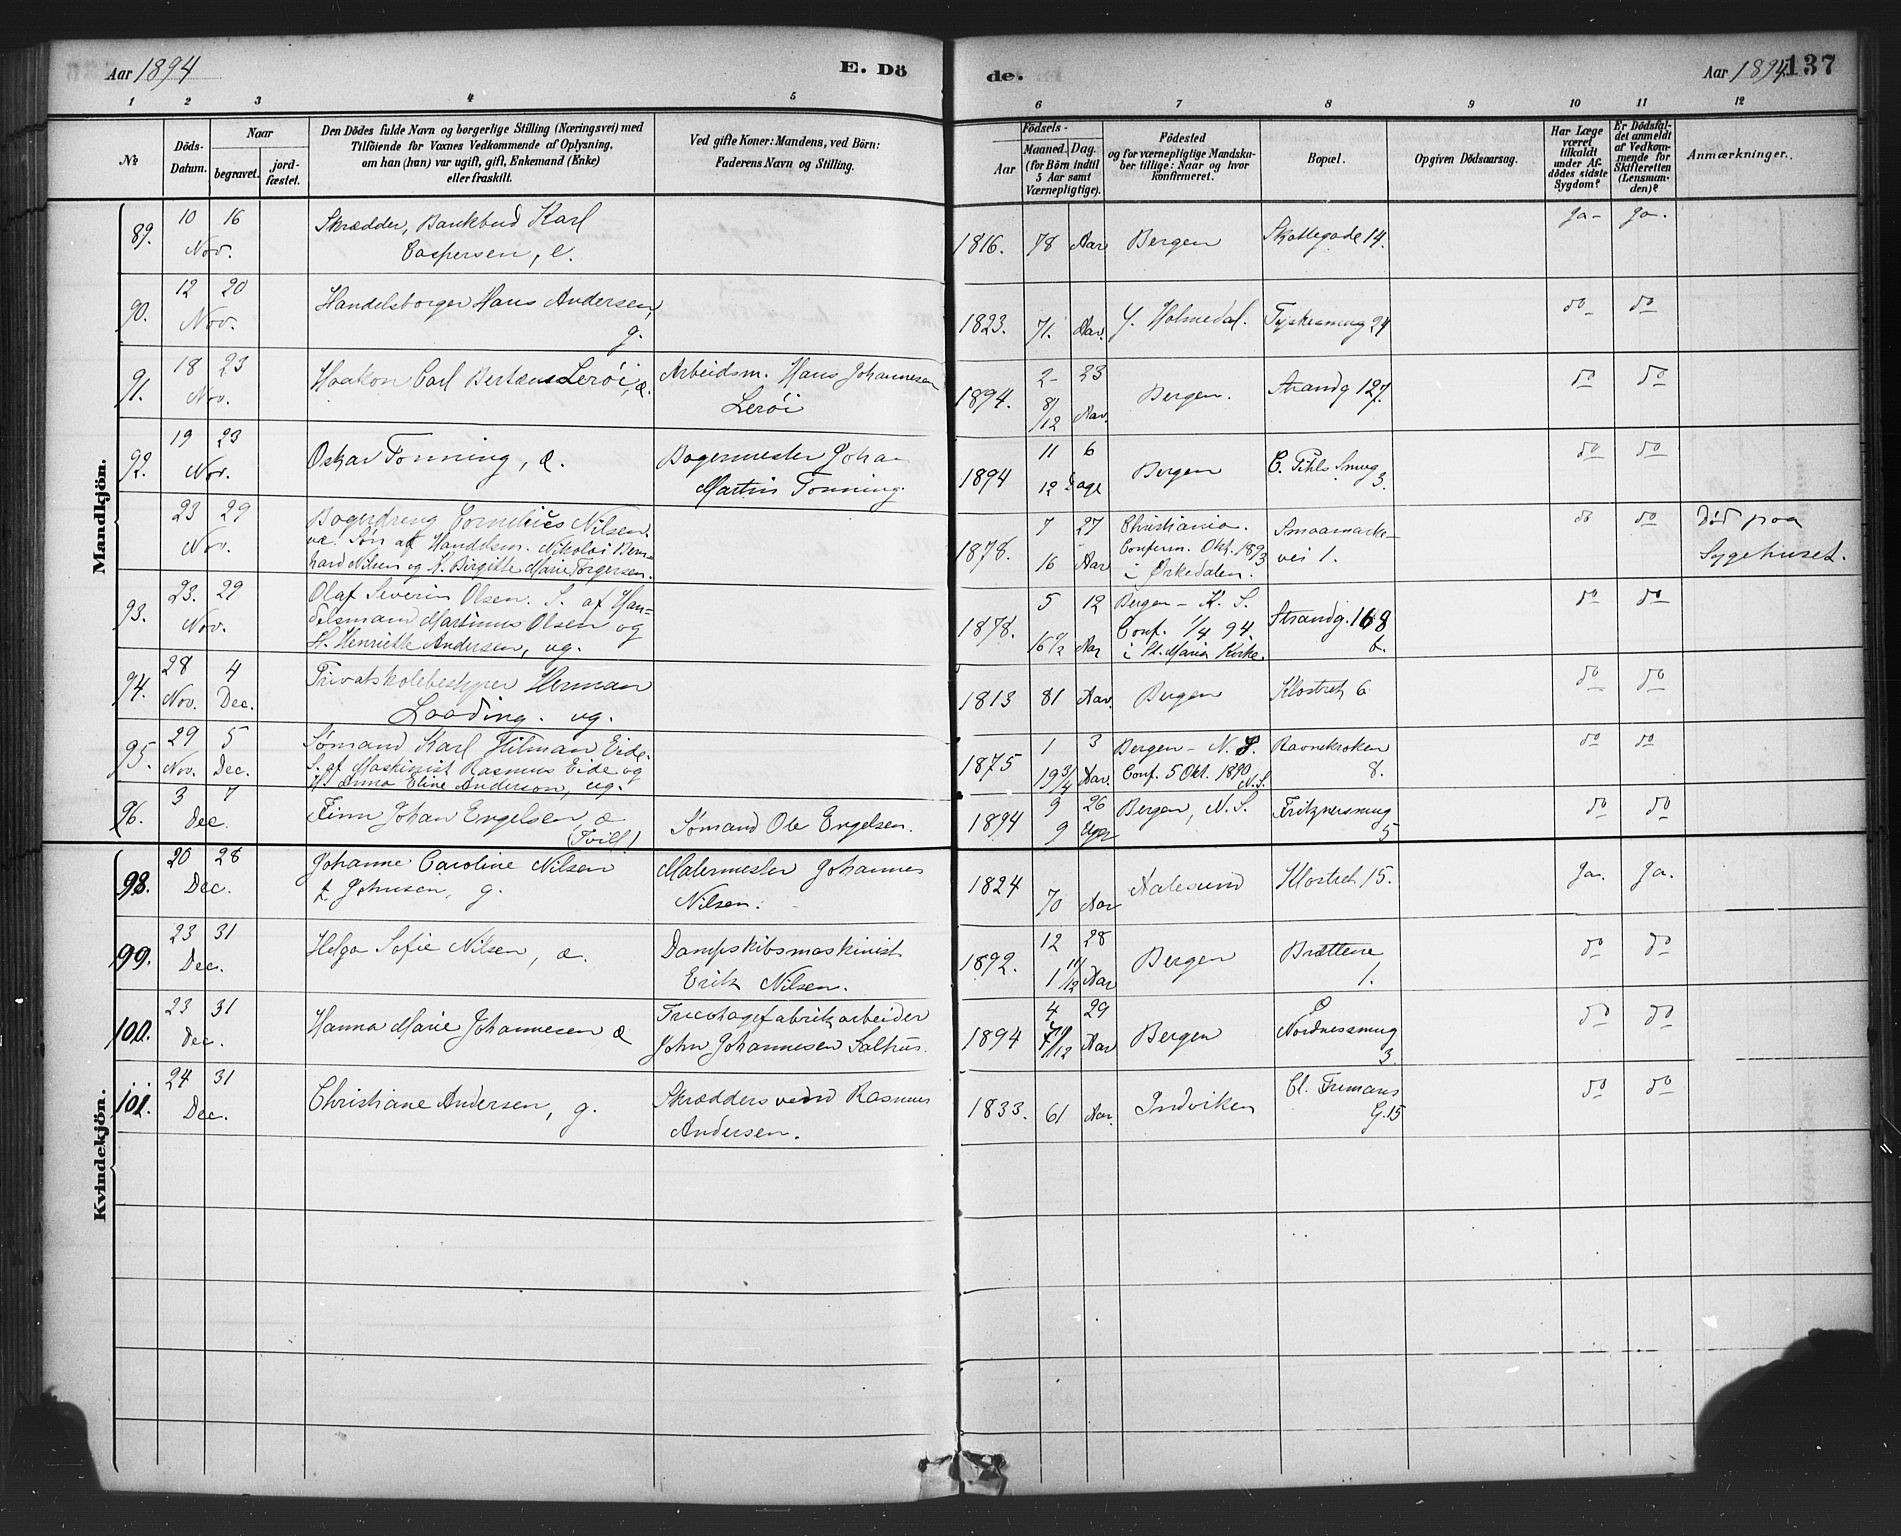 Aar 1894
E. Dö
de.
Aar 1894
137
1 2 3 4 5 6 7 8 9 10 11 12
No
Döds-
Datum.
Naar
begravet.
jord-
fæstet.
Den Dödes fulde Navn og borgerlige Stilling (Næringsvei) med
Tilföiende for Voxnes Vedkommende af Oplysning,
om han (hun) var ugift, gift, Enkemand (Enke)
eller fraskilt.
Ved gifte Koner: Mandens, ved Börn:
Faderens Navn og Stilling.
Aar
Födsels-
Maaned. Dag.
(for Börn indtil
5 Aar samt
Værnepligtige).
Födested
og for værnepligtige Mandska-
ber tillige: Naar og hvor
konfirmeret.
Bopæl.
Opgiven Dödsaarsag.
Har Læge
været
tilkaldt
under Af-
dödes sidste
Sygdom?
Er Dödsfal-
det anmeldt
af Vedkom-
mende for
Skifteretten
(Lensman-
den)?
Anmærkninger.
Mandkjön.
89. 10 Nov. 16
Skrædder, Bankbud Karl
Caspersen, e.
1816. 78 Aar Bergen Skottegade 14. Ja- Ja.
90. 12 Nov. 20
Handelsborger Hans Andersen,
g.
1823. 71. Aar. Y. Holmedal. Tyskesmug 24 do do
91. 18 Nov. 23
Haakon Carl Bertæus Lerøi, æ.
Arbeidsm. Hans Johannesen
Lerøi
1894. 2- 23
8/12 Aar. Bergen. Strandg 127. do do
92. 19 Nov. 23
Oskar Tonning, æ.
Bagermester Johan
Martin Tonning.
1894 11 6
12 Dage Bergen C. Pihls Smug
3. do do
23 Nov. 29
Bagerdreng Cornelius Nilsen.
ug. Søn af Handelsm. Nikolai Bern-
hard Nilsen og H. Birgitte Marie Torgersen.
1878. 7 27
16 Aar
Christiania.
Conferm. Okt. 1893
i Ørkedalen.
Smaamarke-
vei 1.
do do
Död paa
Sygehuset.
93. 23. Nov. 29
Olaf Severin Olsen. S. af Han-
delsmand Martinus Olsen og
H. Henriette Andersen, ug.
1878. 5 12
16 1/2 Aar
Bergen - K. S.
Conf. 1/4 94.
i St. Maria Kirke.
Strandg. 168
b.
do do
94. 28 Nov. 4 Dec.
Privatskolebestyrer Herman
Looding. ug.
1813 81 Aar. Bergen Klostret 6 do do
95. 29 Nov. 5 Dec.
Sømand Karl Hilman Eide.
S. af Maskinist Rasmus Eide og
H. Anna Eline Anderson, ug.
1875 1 3
19 3/4 Aar.
Bergen - N. S.
Conf. 5 Okt. 1890
N. S.
Ravnekroken
8.
do do
96. 3 Dec. 7
Finn Johan Engelsen, æ
(Tvill)
Sømand Ole Engelsen.
1894 9 26
9 Uger
Bergen, N. S. Fritznersmug
5 do do
Kvindekjön.
98. 20 Dec. 28
Johanne Caroline Nilsen
f Johnsen, g.
Malermester Johannes
Nilsen.
1824 70 Aar Aalesund Klostret 15. Ja. Ja.
99. 23 Dec. 31
Helga Sofie Nilsen, æ.
Dampskibsmaskinist
Erik Nilsen.
1892. 12 28
1 11/12 Aar Bergen Brættene
1. do do
100. 23 Dec. 31
Hanna Marie Johannesen æ
Tricotagefabrikarbeider
John Johannesen Salhus.
1894 4 29
/12 Aar Bergen Ø
Nordnessmug
3 do do
101. 24 Dec. 31
Christiane Andersen, g.
Skræddersvend Rasmus
Andersen.
1833. 61 Aar. Indviken Cl. Frimans
G. 15 do do